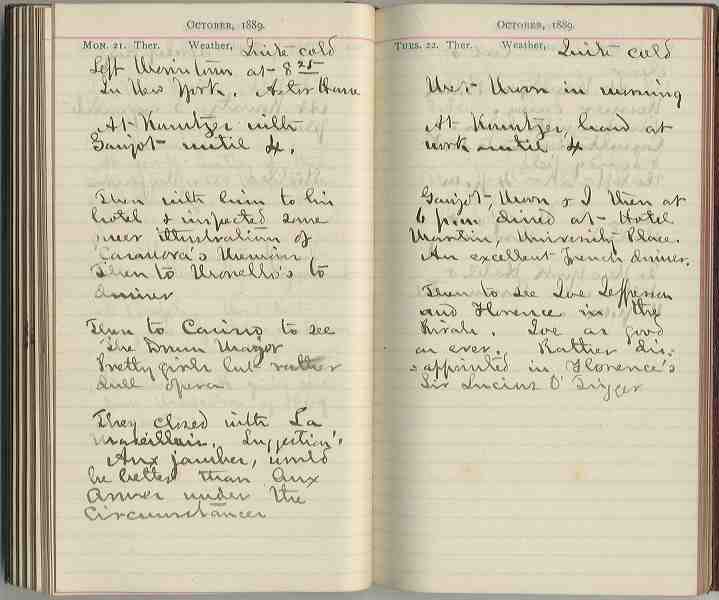 October, 1889.
Mon. 21. Ther. Weather, Quite cold
Left at 8 25
In New York. Astor House
At Kanntzer with
Gaujot until 4.
Then with him to his
hotel & inspected some
queer illustration of
Casanova's Memoirs,
Then to to
dinner
Then to Casino to see
The Drum Major
Pretty girls but rather
dull opera
They closed with La
Marseillais. Suggestion:
Aux jambes, would
be better than Aux
Armes under the
Circumstances
October, 1889.
Tues. 22. Ther. Weather, Quite cold
Met in morning
At hard at
work until 4
Gaujot & I then at
6 p.m. dined at Hotel
Martin, University Place.
An excellent French dinner.
Then to see Joe Jefferson
and Florence in the
Rivals. Joe as good
as ever. Rather dis-
appointed in Florence's
Sir Lucius O'Trigger